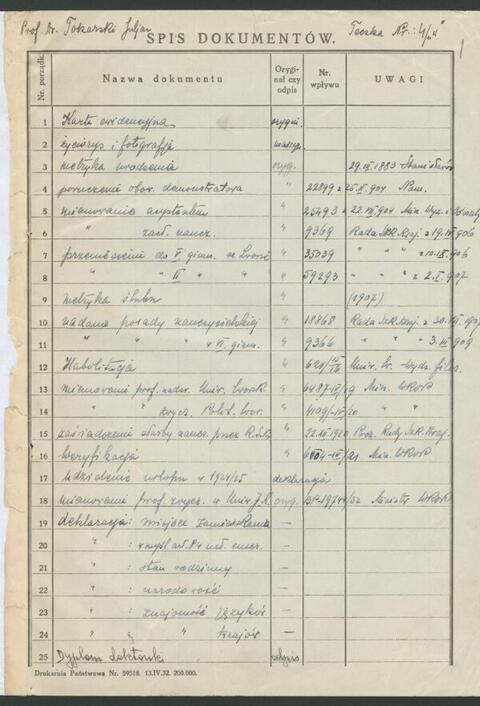 Prof. Dr. Tokarski Juljan Teczka Nr.:
1
SPIS DOKUMENTÓW.
Nr. porządk. Nazwa dokumentu Orygi-nał czy odpis Nr. wpływu UWAGI
1 Karta ewidencyjna orygin.
2 życiorys i fotografja
3 metryka urodzenia oryg. 1883 Stanisławów
4 poruczenie obow. demonstratora " 22899 904 Nam.
5 mianowanie asystentem " 25493 904 Min. Wyzn. i Oświaty
6 " zast. naucz. " 9369 Rada Szk. Kraj. z 906
7 przeniesienie do V gimn. we Lwowie " 35039 " " " 906
8 " " II " " " 59293 " " " 2.I.907
9 metryka ślubu " (1907)
10 nadanie posady nauczycielskiej " 18868 Rada Szk. Kraj. z 30.
11 " " w VI gimn. " 9366 " " 3. 909
12 Habilitacja " Univ. lw. Wydz. filoz.
13 mianowanie prof. nadzw. Univ. lwowsk. " 6487 Min. WROP
14 " " zwycz. Polit. lwow. " Min. WROP
15 zaświadczenie służby naucz. przez R.Szk. " 22. 1920 Prez. Rady Szk. Kraj.
16 Weryfikacja " Min. WROP
17 udzielenie urlopu w 1924/25 deklaracja
18 mianowanie prof. zwycz. w Univ. J.K. oryg. Ministr WROP
19 deklaracja: miejsce zamieszkania —
20 " : w myśl art. 84 ust. emer. —
21 " : stan rodzinny —
22 " : narodowość —
23 " : znajomość języków —
24 " " " krajów —
25 Dyplom doktorski odpis
Drukarnia Państwowa Nr. 59518. 13.IV.32. 200.000.